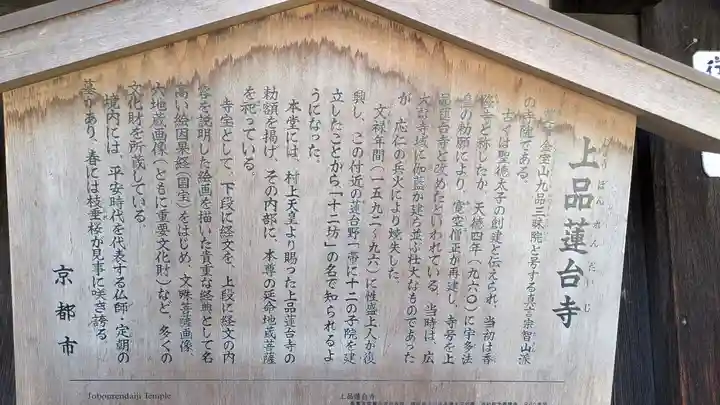 上品蓮台寺
じょうぼんれんだいじ
華金宝山九品三昧院と号する真言宗智山派
の寺院である。
古くは聖徳太子の創建と伝えられ、当初は香
隆寺と称したが、天徳四年(九六〇)に宇多法
皇の勅願により、寛空僧正が再建し、寺号を上
品蓮台寺と改めたといわれている。当時は、広
大な寺域に伽藍が建ち並ぶ壮大なものであった
が、応仁の兵火により焼失した。
文禄年間(一五九二〜九六)に性盛上人が復
興し、この付近の蓮台野一帯に十二の子院を建
立したことから「十二坊」の名で知られるよ
うになった。
本堂には、村上天皇より賜った上品蓮台寺の
勅額を掲げ、その内部に、本尊の延命地蔵菩薩
を祀っている。
寺宝として、下段に経文を、上段に経文の内
容を説明した絵画を描いた貴重な経典として名
高い絵因果経(国宝)をはじめ、文殊菩薩画像、
六地蔵画像(ともに重要文化財)など、多くの
文化財を所蔵している。
境内には、平安時代を代表する仏師・定朝の
墓があり、春には枝垂桜が見事に咲き誇る。
京都市
Jobonrendaiji Temple
上品蓮台寺